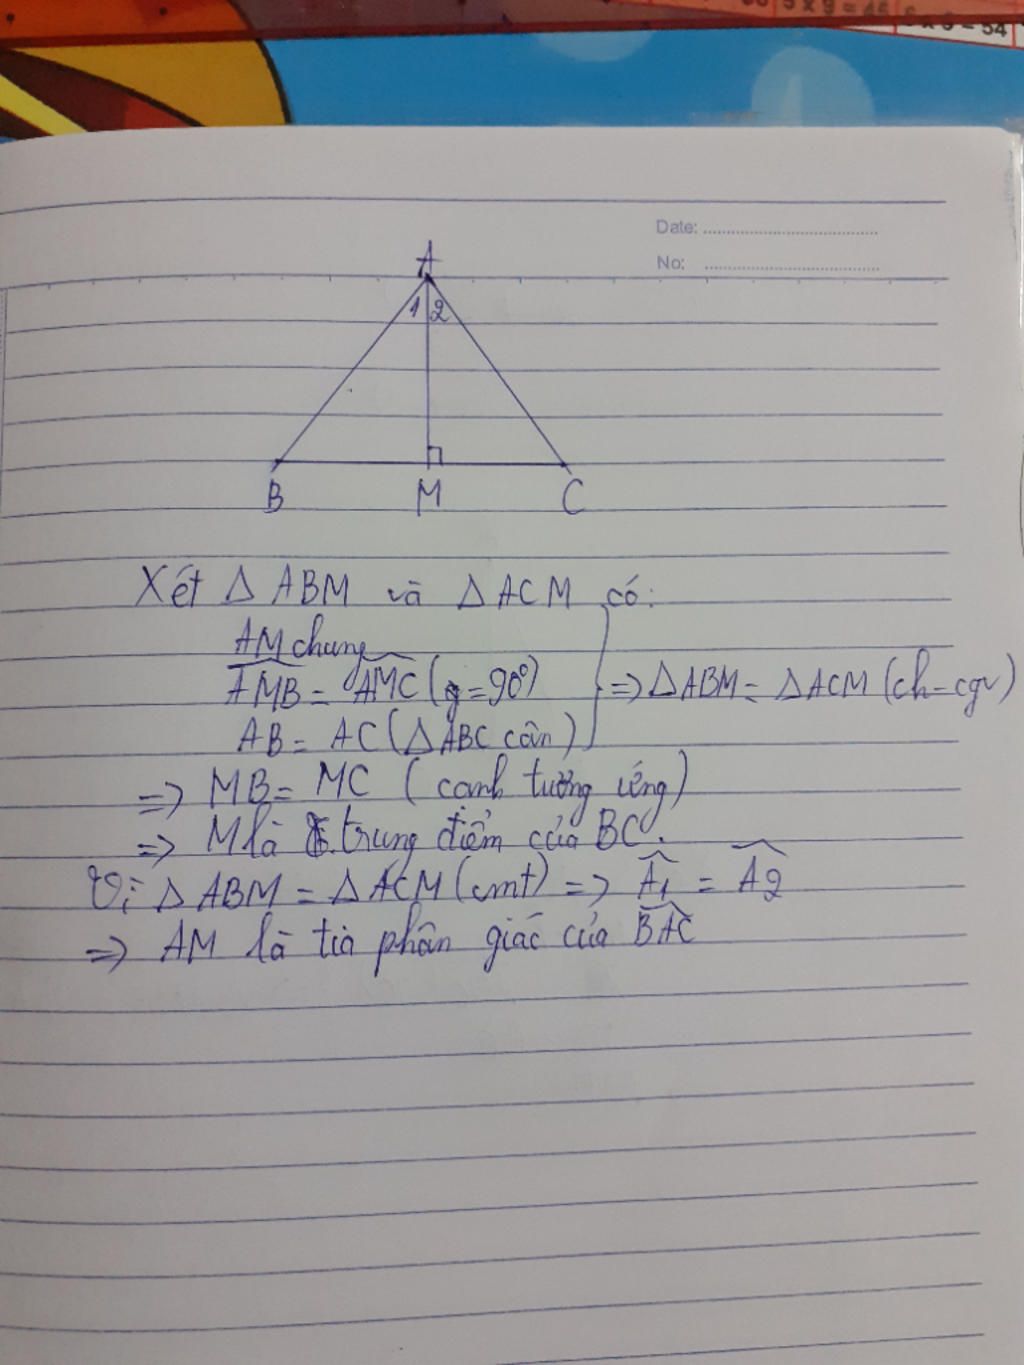 5 x 9 = 45
x 9 = 54
Date:
No:
A
1 2
B M C
Xét Δ ABM và Δ ACM có:
AM chung
AMB = AMC ( = 90°) => Δ ABM = Δ ACM (ch - cgv)
AB = AC (Δ ABC cân)
=> MB = MC (cạnh tương ứng)
=> M là trung điểm của BC.
Vì Δ ABM = Δ ACM (cmt) => Â1 = Â2
=> AM là tia phân giác của BAC